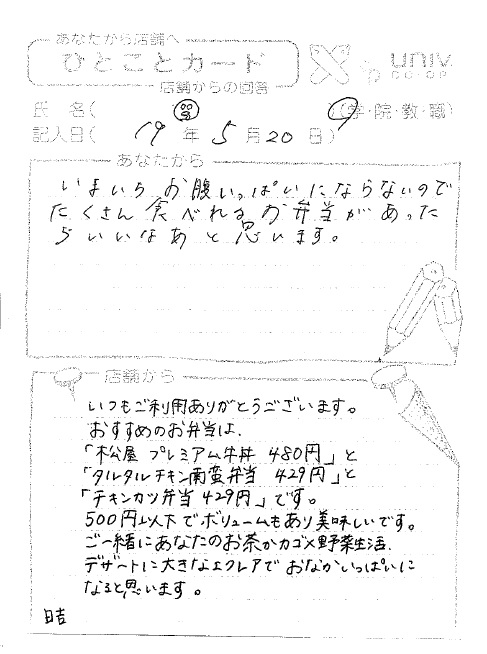 あなたから店舗へ
ひとことカード
店舗からの回答
univ.
CO-OP
氏 名(
(学・院・教・職)
記入日( 19 年 5 月 20 日)
あなたから
いまいち お腹いっぱいにならないので
たくさん食べれる お弁当があった
らいいなあと思います。
店舗から
いつもご利用ありがとうございます。
おすすめのお弁当は、
「松屋 プレミアム牛丼 480円」と
「タルタルチキン南蛮弁当 429円」と
「チキンカツ弁当 429円」です。
500円以下でボリュームもあり美味しいです。
ご一緒にあなたのお茶かカゴメ野菜生活、
デザートに大きなエクレアでおなかいっぱいに
なると思います。
日吉